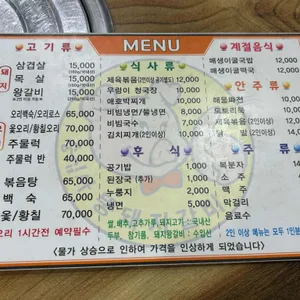 고 기 류
MENU
계절음식
돼지
삼겹살 15,000
목 살 15,000
왕갈비 15,000
오리백숙/오리로스 65,000
옻오리/황칠오리 70,000
주물럭 70,000
주물럭 반 40,000
볶음탕 65,000
백 숙 65,000
옻/황칠 70,000
오리 1시간전 예약필수
식 사 류
제육볶음(2인이상 공기별도) 12,000
우렁이 청국장 10,000
애호박찌개 10,000
비빔냉면/물냉면 8,000
비빔국수 7,000
김치찌개(2인이상) 10,000
후 식
공기밥 1,000
된장국 (추가) 1,000
누룽지 2,000
냉면 5,000
쌀, 배추, 고추가루, 돼지고기 : 국내산
두부, 참기름, 돼지왕갈비 : 수입산
매생이굴국밥 12,000
매생이굴떡국 12,000
안 주 류
해물파전
도토리묵
제육볶음(2인이상)
닭 발
주 류
복분자
소 주
맥 주
막걸리
음료수
2인 이상 메뉴는 모두 1인분
<물가 상승으로 인하여 가격을 인상하게 되었습니다>